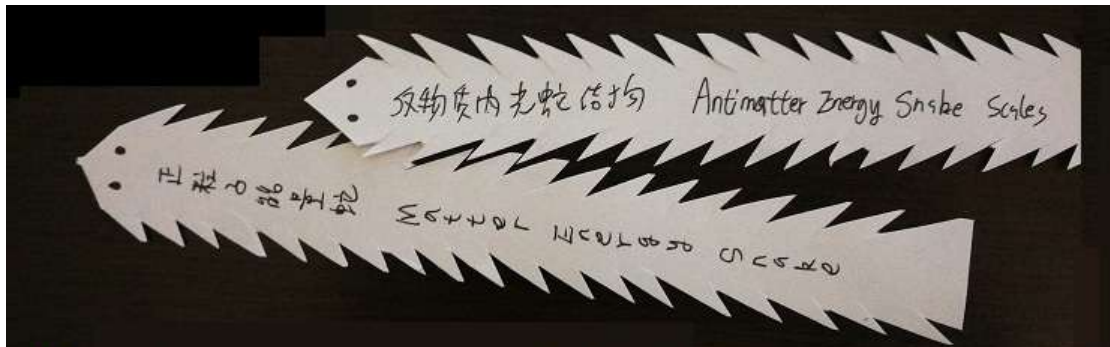 反物质内光蛇结构 Antimatter Energy Snake Scales
正粒子能量蛇 Matter Energy Snake